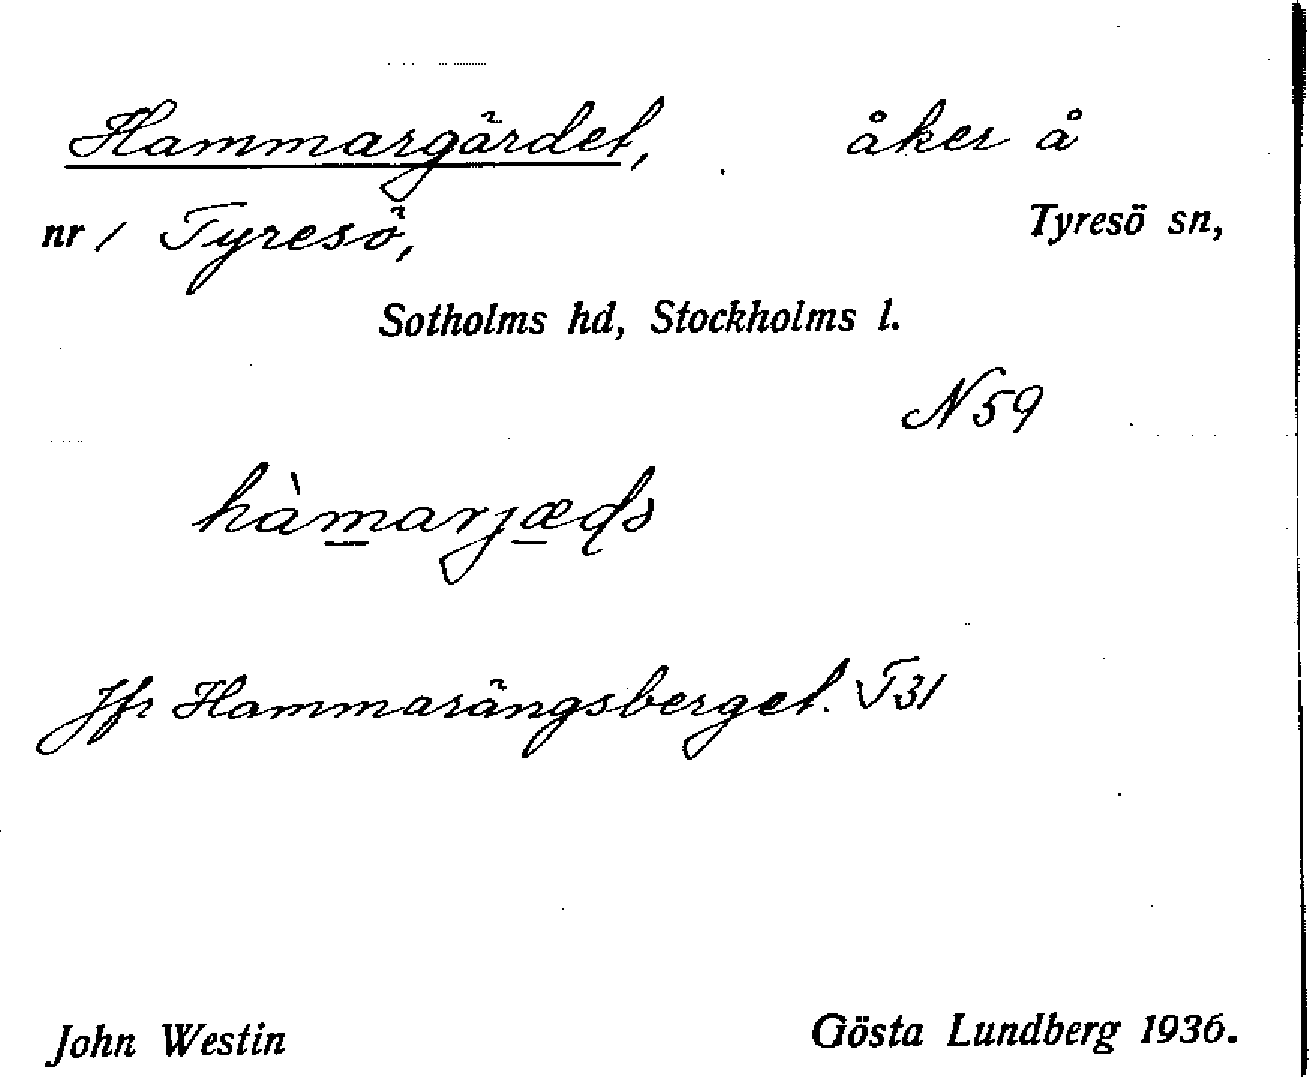 Hammargärdet, åker å
nr 1 Tyresö, Tyresö sn,
Sotholms hd, Stockholms l.
N 59
hàmarjæḍs
Jfr Hammarängsberget. T31
John Westin Gösta Lundberg 1936.